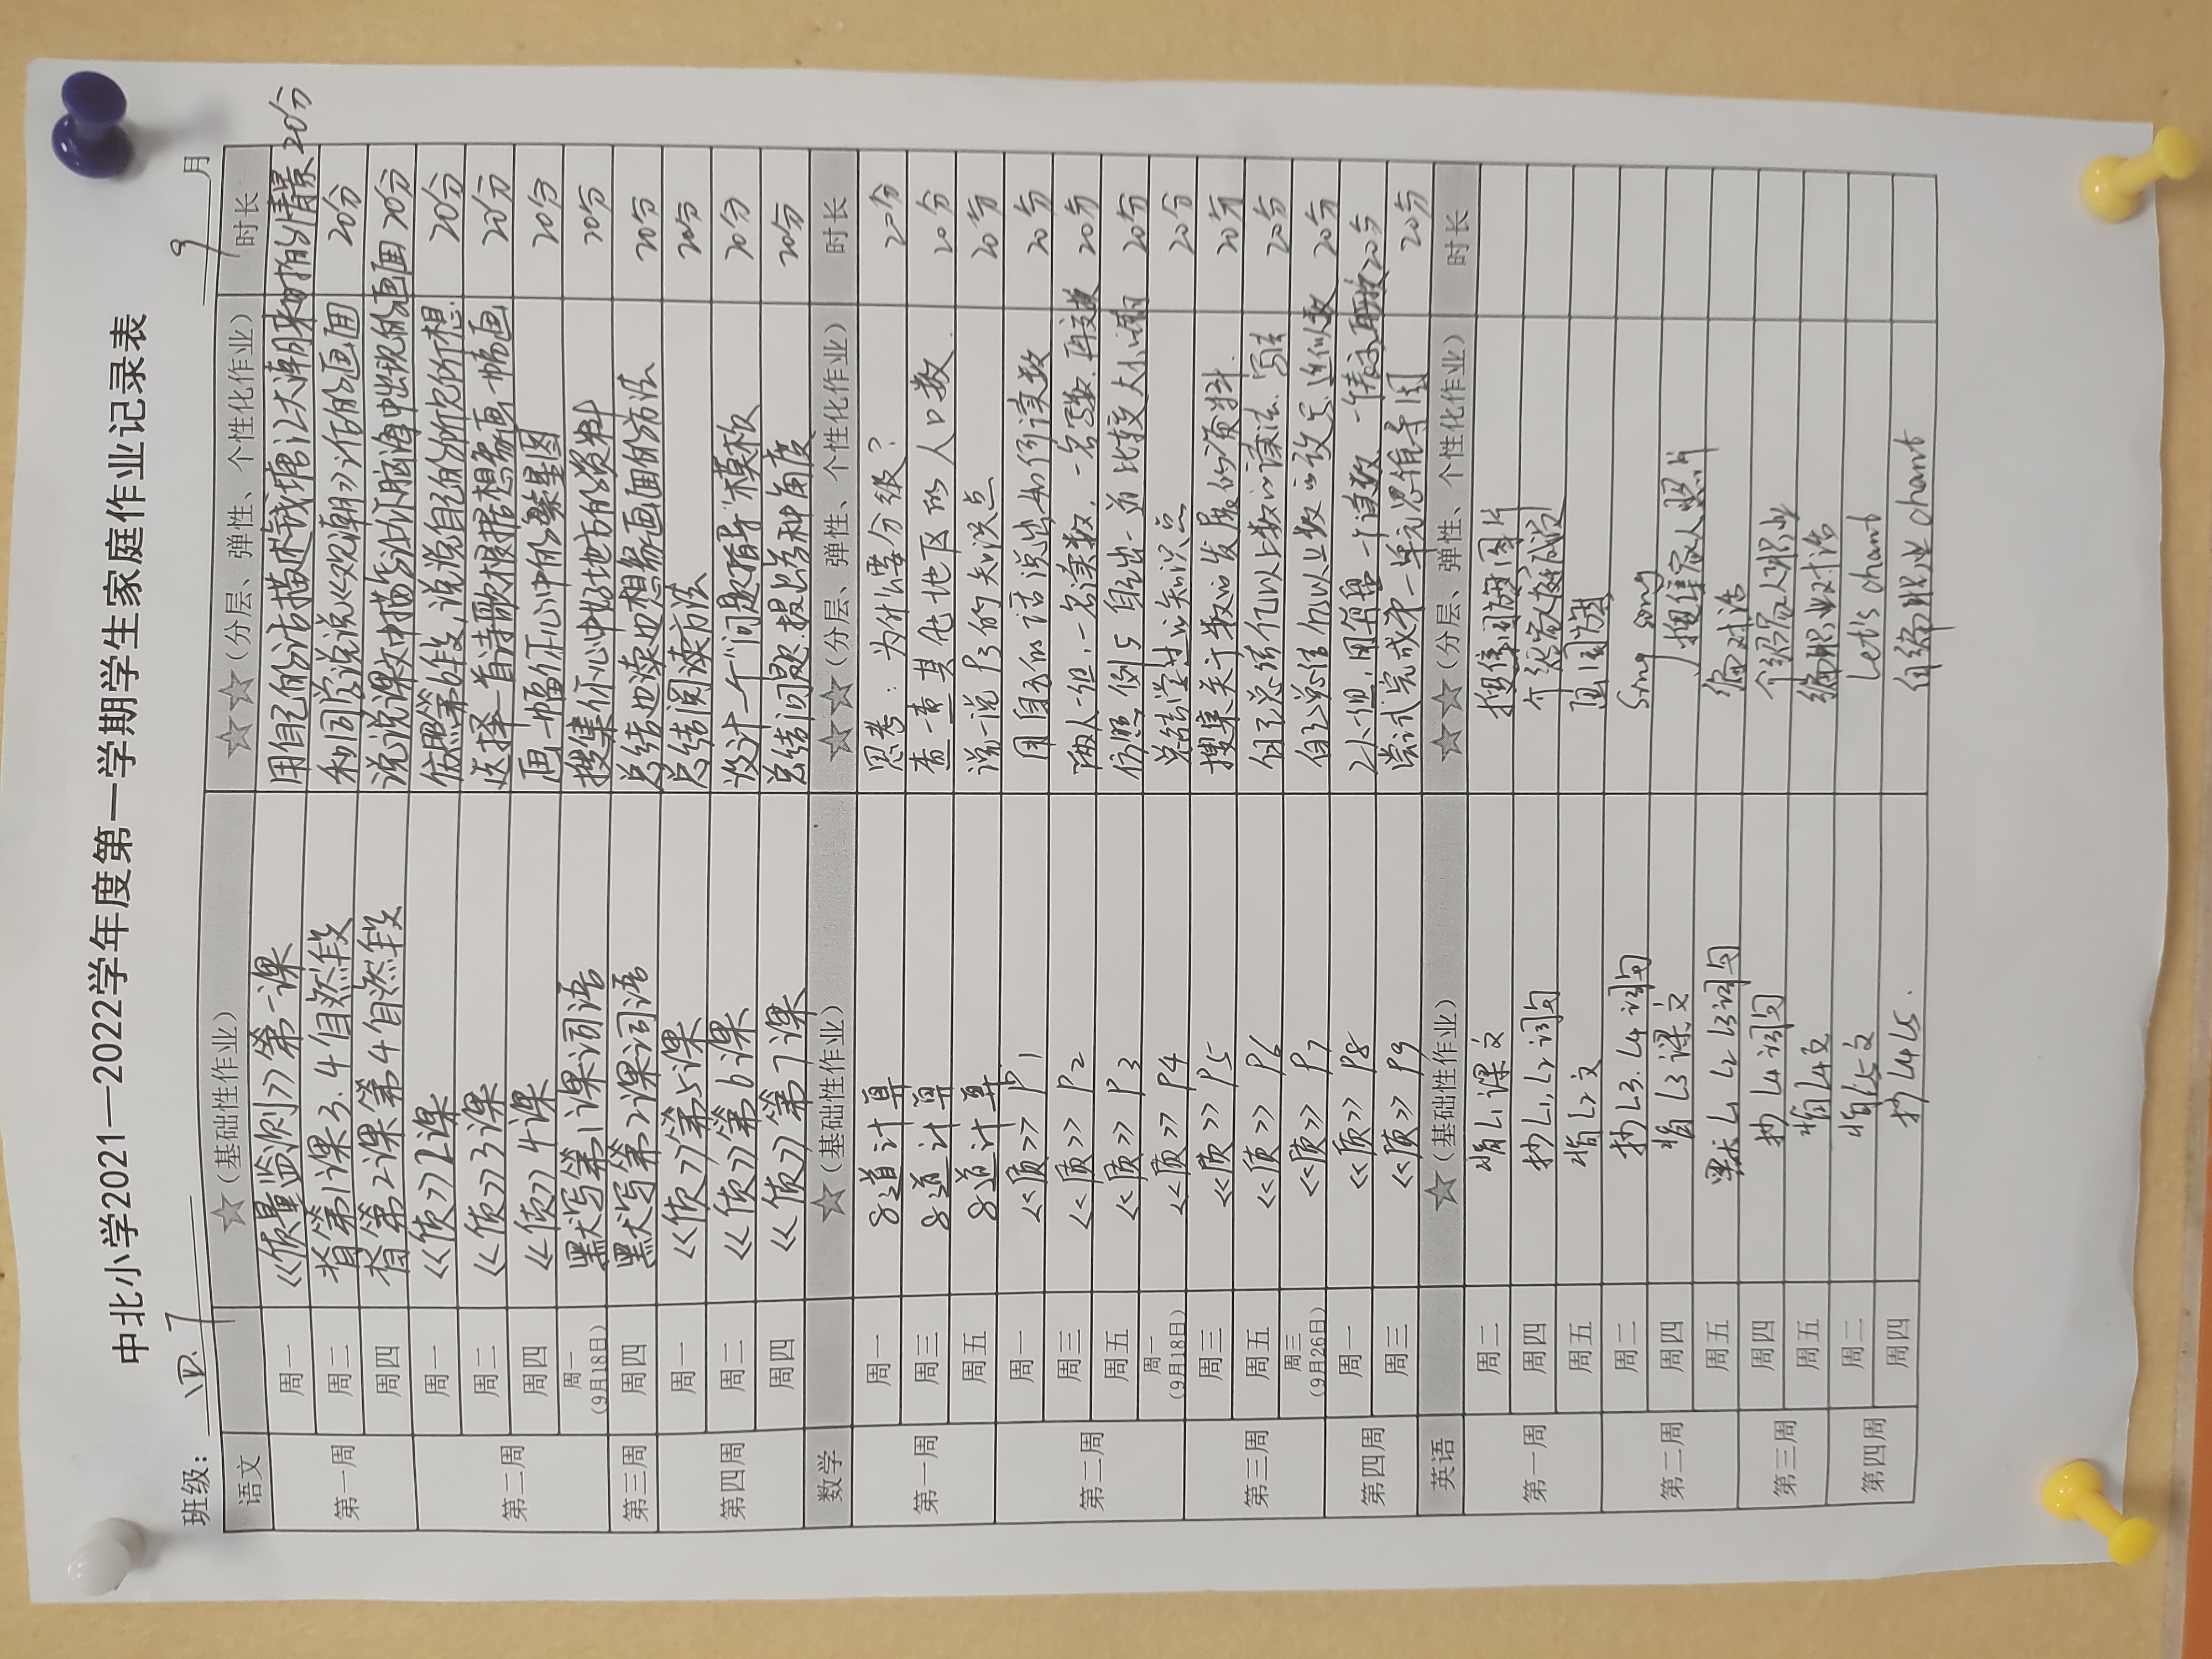 中北小学2021—2022学年度第一学期学生家庭作业记录表
班级: 四.7 9 月
语文 ☆(基础性作业) ☆☆(分层、弹性、个性化作业) 时长
第一周 周一 《质量监测》第一课 用自己的话描述钱塘江大潮来时的情景 20分
周二 背第1课3.4自然段 和同学说说《观潮》让你的画面 20分
周四 背第2课第4自然段 说说课文中描写让你脑海中出现的画面 20分
第二周 周一 《质》2课 仿照第6段,说说自己的所见所想. 20分
周三 《质》3课 选择一首诗歌根据想象画一幅画 20分
周四 《质》4课 画一幅你心中的繁星图 20分
周一(9月18日) 默写第1课词语 搜集你心中好地方的资料 20分
第三周 周四 默写第2课词语 总结边读边想象画面的方法 20分
第四周 周一 《质》第5课 总结阅读方法 20分
周二 《质》第6课 设计一个"问题指导"模板 20分
周四 《质》第7课 总结问题提出多种角度 20分
数学 ☆(基础性作业) ☆☆(分层、弹性、个性化作业) 时长
第一周 周一 8道计算 思考:为什么要分级? 20分
周三 8道计算 查一查其他地区的人口数. 20分
周五 8道计算 说一说P3的知识点 20分
第二周 周一 《质》P1 用自己的话说出如何读数 20分
周三 《质》P2 两人一组,一名读数,一名写数.再交换 20分
周五 《质》P3 仿照例5自己出一道比较大小 20分
周一(9月18日) 《质》P4 总结学过的知识点 20分
第三周 周三 《质》P5 搜集关于数的发展的资料. 20分
周五 《质》P6 自己总结亿以上数的读法.写法 20分
周三(9月26日) 《质》P7 自己总结亿以上数的改写.近似数 20分
第四周 周一 《质》P8 2人一组,用算盘一个读数,一个拨 20分
周三 《质》P9 尝试完成第一单元思维导图 20分
英语 ☆(基础性作业) ☆☆(分层、弹性、个性化作业) 时长
第一周 周二 背L1课文 搜集国旗图片
周四 抄L1,L2词句 介绍家庭成员
周五 背L2文 画国旗
第二周 周二 抄L3.L4词句 Sing song
周四 背L3课文 搜集家人照片
周五 默L1 L2 L3词句 编对话
第三周 周四 抄L4词句 介绍家人职业
周五 背L4文 编职业对话
第四周 周二 背L5文 Let's chant
周四 抄L4L5. 自编职业chant